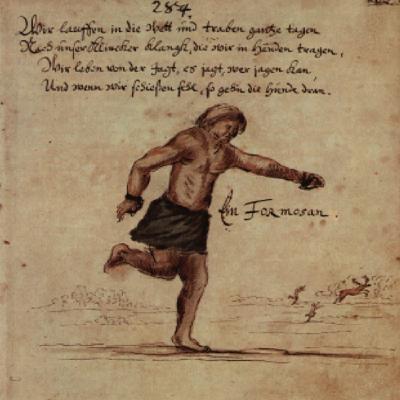 284.
Wir lauffen in die Wett und traben gantze tagen
Nach unser Klincker klangk, die wir in Händen tragen,
Wir leben von der Jagt, es jagt, wer jagen kan,
Und wenn wir schießen fehl, so gehn die Hunde dran.
Ein Formosan.